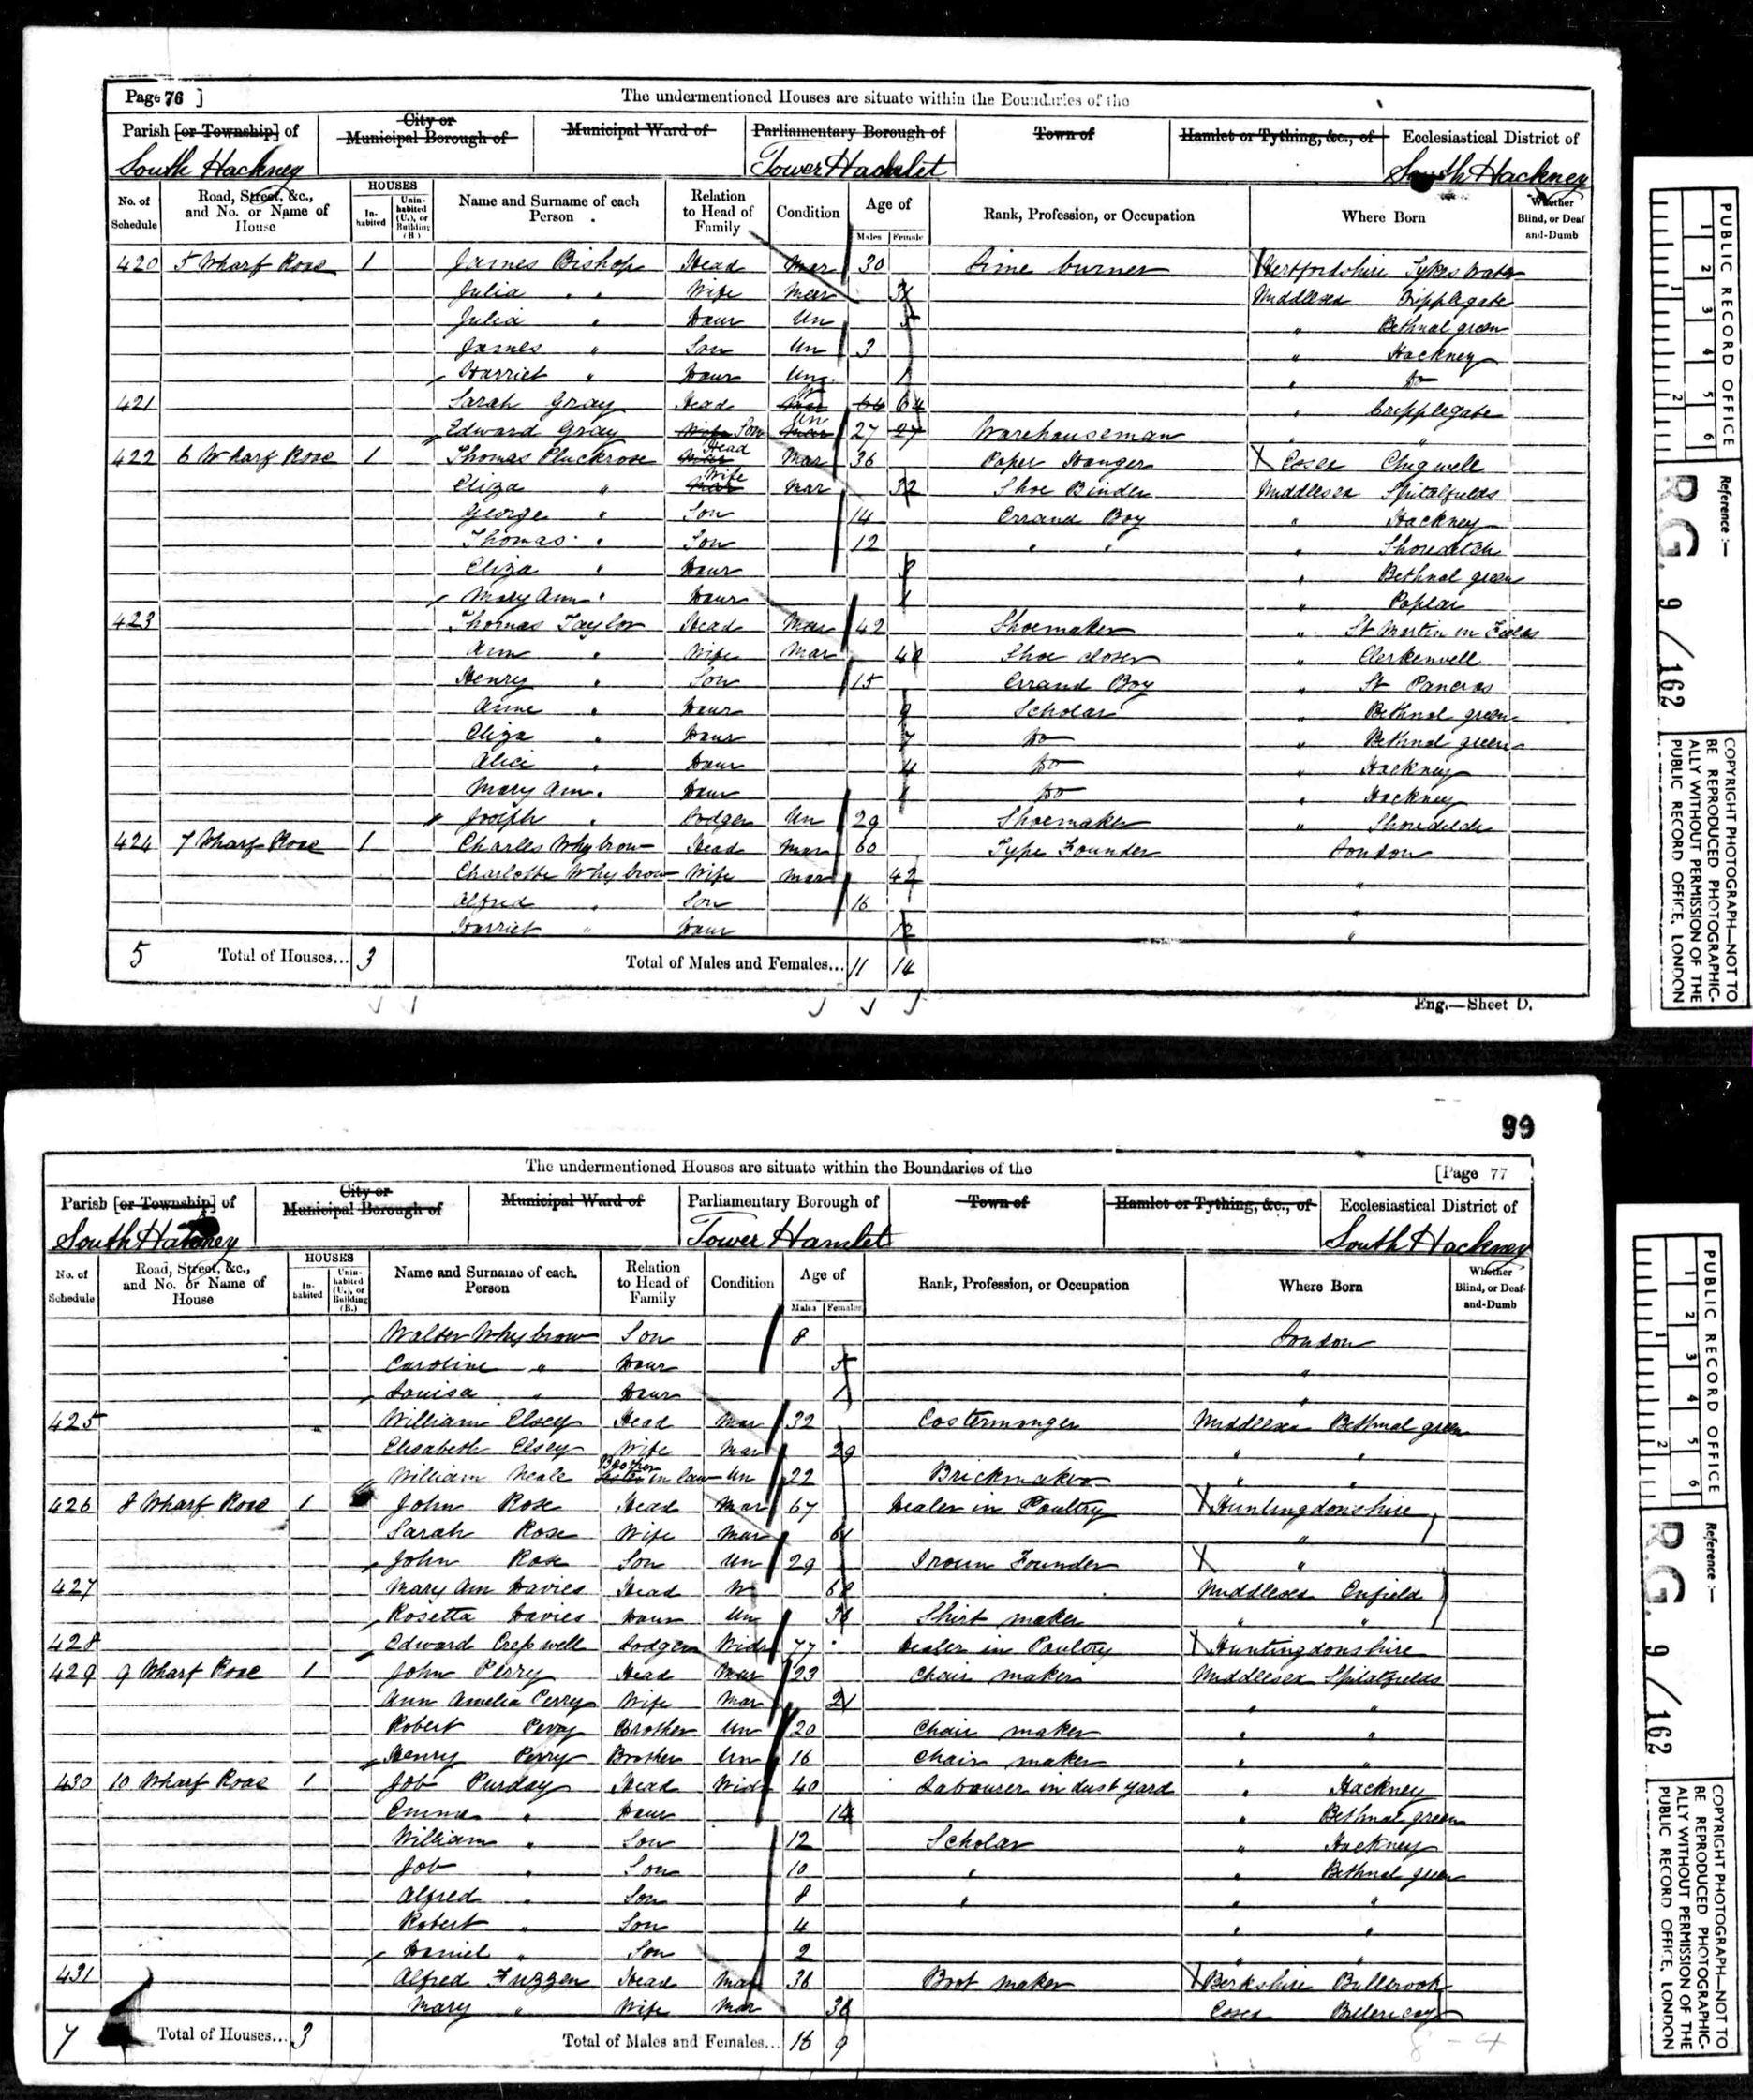 Page 76 ]
The undermentioned Houses are situate within the Boundaries of the
Parish [or Township] of City or Municipal Borough of Municipal Ward of Parliamentary Borough of Town of Hamlet or Tything, &c., of Ecclesiastical District of
South Hackney Tower Hamlet South Hackney
No. of Schedule Road, Street, &c., and No. or Name of House HOUSES Inhabited Uninhabited (U.), or Building (B) Name and Surname of each Person Relation to Head of Family Condition Age of Males Females Rank, Profession, or Occupation Where Born Whether Blind, or Deaf and-Dumb
420 5 Wharf Road 1 James Bishop Head Mar 30 Lime burner Hertfordshire Sykes Water
Julia " Wife Mar Middlesex Cripplegate
Julia " Daur Un 5 " Bethnal green
James " Son Un 3 " Hackney
Harriet " Daur Un 1 " Do
421 Sarah Gray Head 64 64 " Cripplegate
Edward Gray Wife Son Mar Un 27 27 Warehouseman " "
422 6 Wharf Road 1 Thomas Pluckrose Head Mar 36 Paper Hanger Essex Chigwell
Eliza " Mar Wife Mar 32 Shoe Binder Middlesex Spitalfields
George " Son 14 Errand Boy " Hackney
Thomas " Son 12 " " " Shoreditch
Eliza " Daur " Bethnal green
Mary Ann " Daur 1 " Poplar
423 Thomas Taylor Head Mar 42 Shoemaker " St Martin in Fields
Ann " Wife Mar Shoe closer " Clerkenwell
Henry " Son 15 Errand Boy " St Pancras
Anne " Daur 9 Scholar " Bethnal green
Eliza " Daur 7 Do " Bethnal green
Alice " Daur 4 Do " Hackney
Mary Ann " Daur 1 Do " Hackney
Joseph " Lodger Un 29 Shoemaker " Shoreditch
424 7 Wharf Road 1 Charles Whybrow Head Mar 60 Type Founder London
Charlotte Whybrow Wife Mar 42 "
Alfred " Son 16 "
Harriet " Daur 12 "
5 Total of Houses... 3 Total of Males and Females... 11 14
Eng.—Sheet D.
PUBLIC RECORD OFFICE
1 2 3 4 5 6
1 2
Reference :—
R.G. 9/162
COPYRIGHT PHOTOGRAPH—NOT TO BE REPRODUCED PHOTOGRAPHIC- ALLY WITHOUT PERMISSION OF THE PUBLIC RECORD OFFICE, LONDON
99
The undermentioned Houses are situate within the Boundaries of the [Page 77
Parish [or Township] of City or Municipal Borough of Municipal Ward of Parliamentary Borough of Town of Hamlet or Tything, &c., of Ecclesiastical District of
South Hackney Tower Hamlet South Hackney
No. of Schedule Road, Street, &c., and No. or Name of House HOUSES Inhabited Uninhabited (U.), or Building (B.) Name and Surname of each Person Relation to Head of Family Condition Age of Males Females Rank, Profession, or Occupation Where Born Whether Blind, or Deaf-and-Dumb
Walter Whybrow Son 8 London
Caroline " Daur 5 "
Louisa " Daur 1 "
425 William Elsey Head Mar 32 Costermonger Middlesex Bethnal green
Elisabeth Elsey Wife Mar 29 " "
William Neale Brother in law Un 22 Brickmaker " "
426 8 Wharf Road 1 John Rose Head Mar 67 Dealer in Poultry Huntingdonshire
Sarah Rose Wife Mar 61 "
John Rose Son Un 29 Iroun Founder "
427 Mary Ann Davies Head W Middlesex Enfield
Rosetta Davies Daur Un Shirt maker " "
428 Edward Cresswell Lodger Widr 77 Dealer in Poultry Huntingdonshire
429 9 Wharf Road 1 John Perry Head Mar 23 Chair maker Middlesex Spitalfields
Ann Amelia Perry Wife Mar 21 " "
Robert Perry Brother Un 20 Chair maker " "
Henry Perry Brother Un 16 Chair maker " "
430 10 Wharf Road 1 Job Purday Head Widr 40 Labourer in dust yard " Hackney
Emma " Daur 14 " Bethnal green
William " Son 12 Scholar " Hackney
Job " Son 10 " " Bethnal green
Alfred " Son 8 " " "
Robert " Son 4 " "
Daniel " Son 2 " "
431 Alfred Fuzzen Head Mar 36 Boot maker Berkshire Bullbrook
Mary " Wife Mar 36 Essex Billericay
7 Total of Houses... 3 Total of Males and Females... 16 9
PUBLIC RECORD OFFICE
1 2 3 4 5 6
1 2
Reference :—
R.G. 9/162
COPYRIGHT PHOTOGRAPH—NOT TO BE REPRODUCED PHOTOGRAPHIC- ALLY WITHOUT PERMISSION OF THE PUBLIC RECORD OFFICE, LONDON